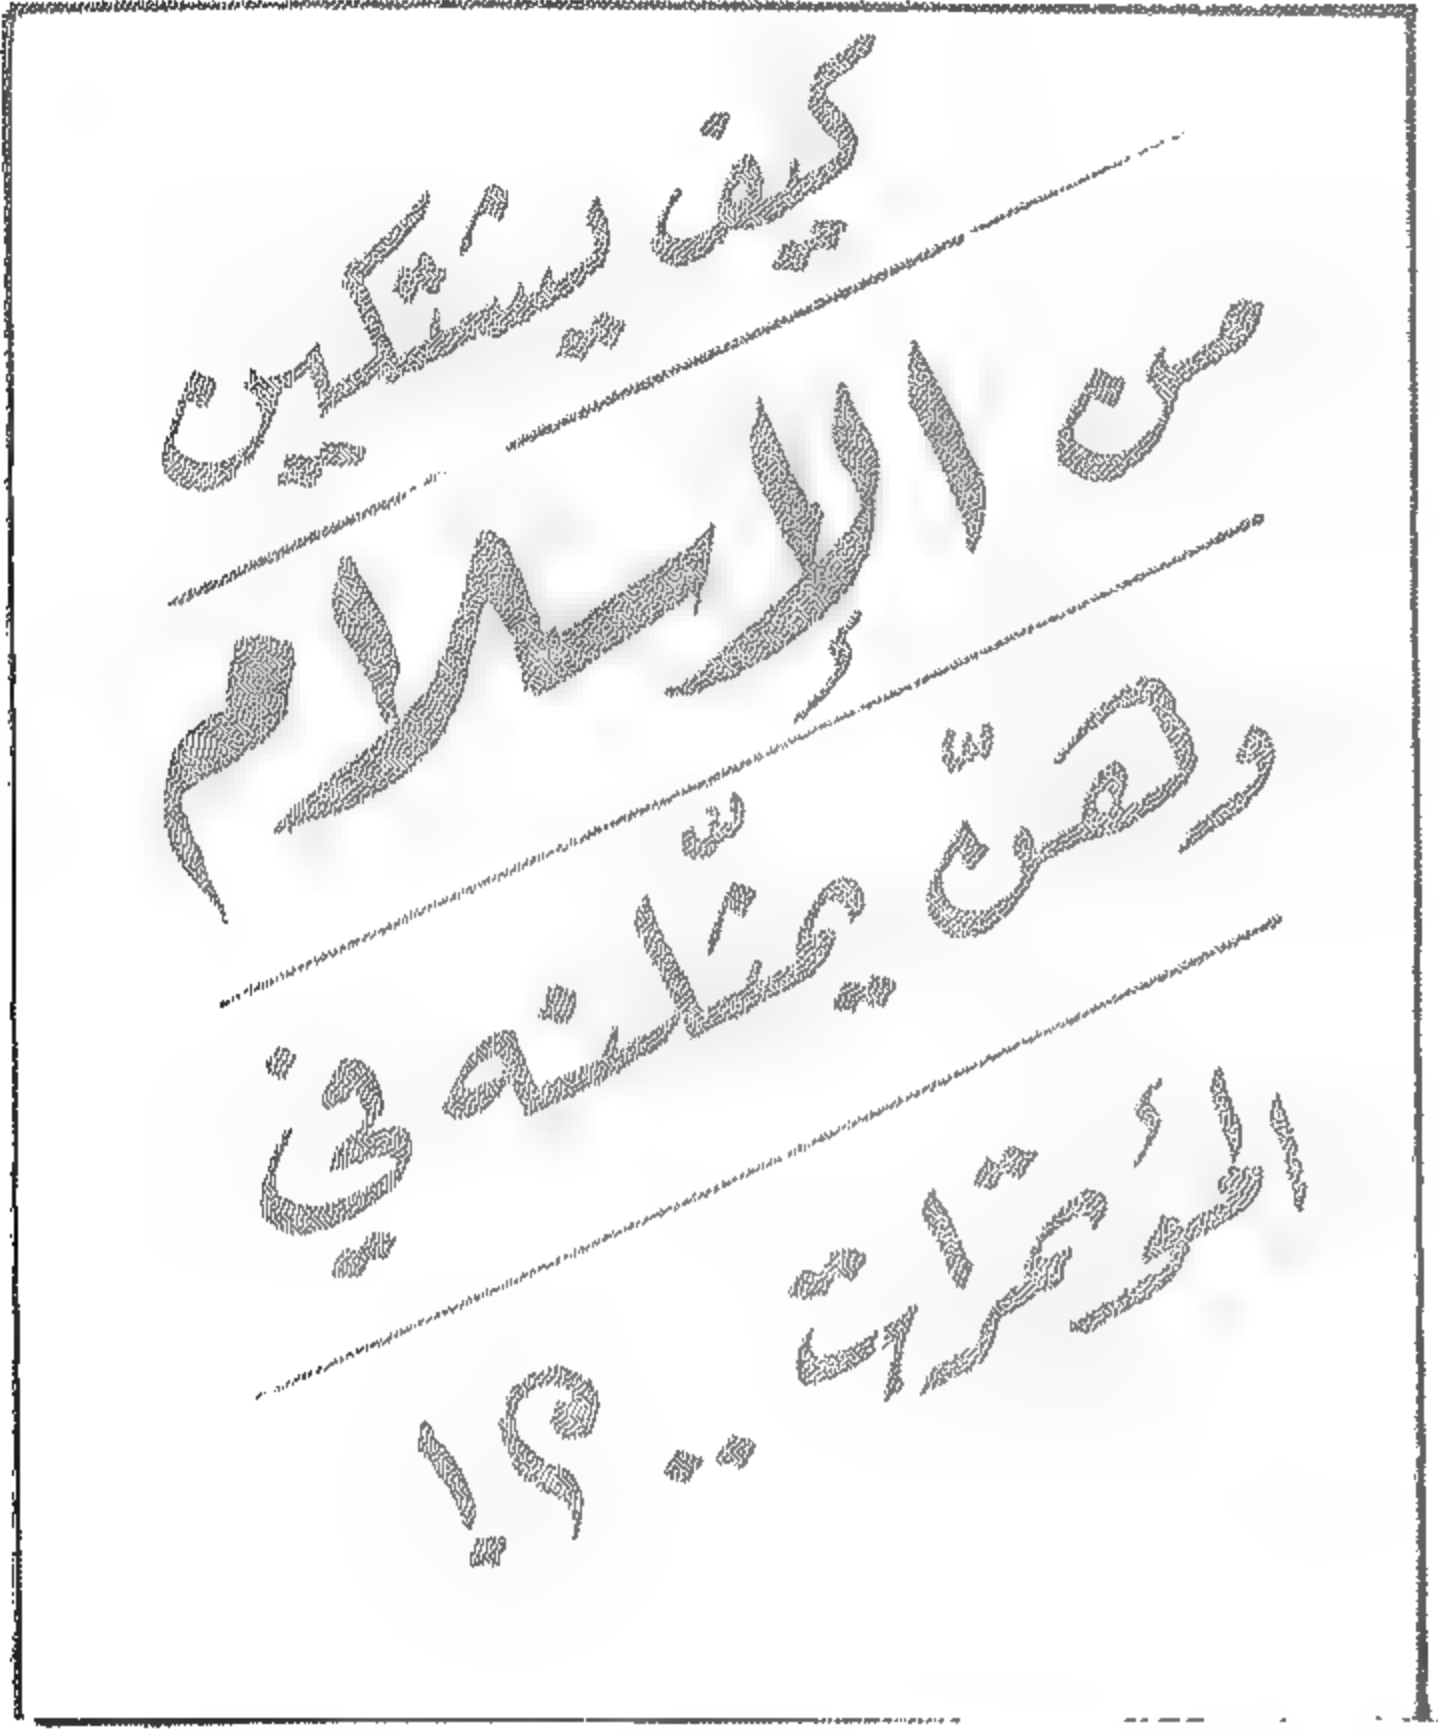 كيف يشتكين
من الإسلام
وهنّ يمثّلنه في
المؤتمرات .. ؟!